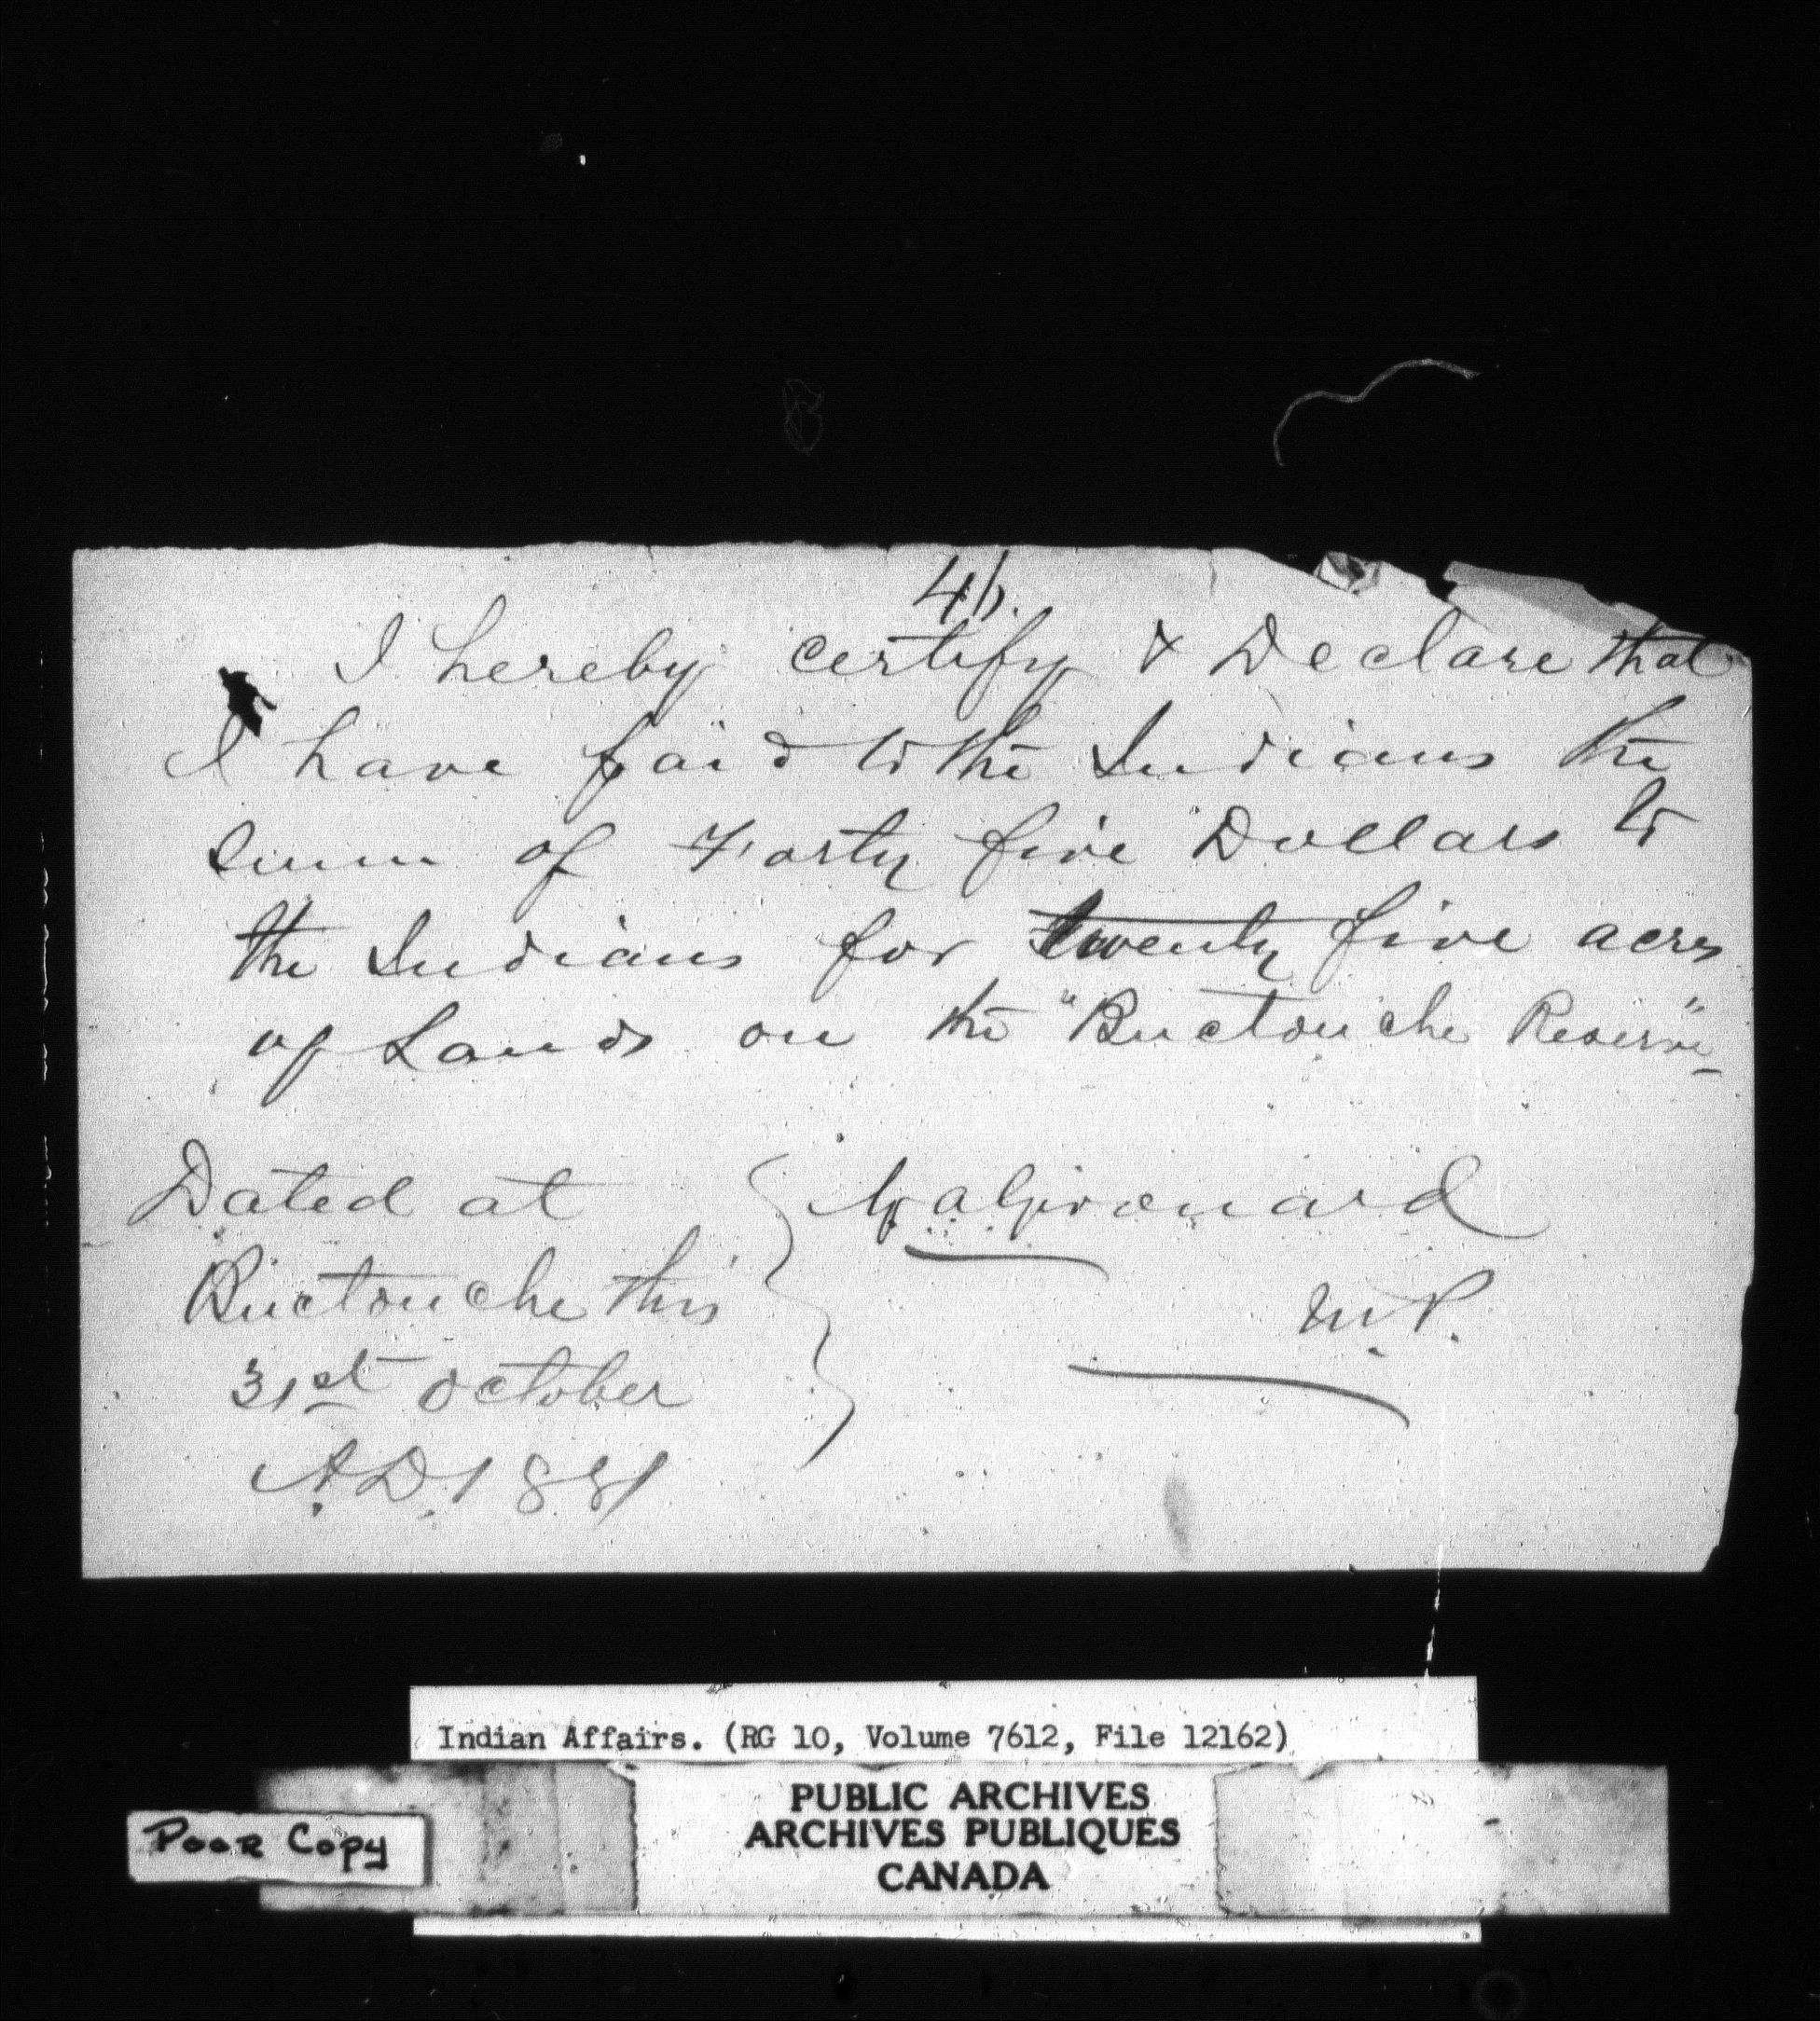 I hereby certify & Declare that
I have paid to the Indians the
sum of Forty five Dollars to
the Indians for twenty five acres
of Lands on the "Buctouche Reserve"
Dated at
Buctouche this
31st October
A.D. 1881
Girouard
M.P.
Indian Affairs. (RG 10, Volume 7612, File 12162)
PUBLIC ARCHIVES
ARCHIVES PUBLIQUES
CANADA
POOR COPY